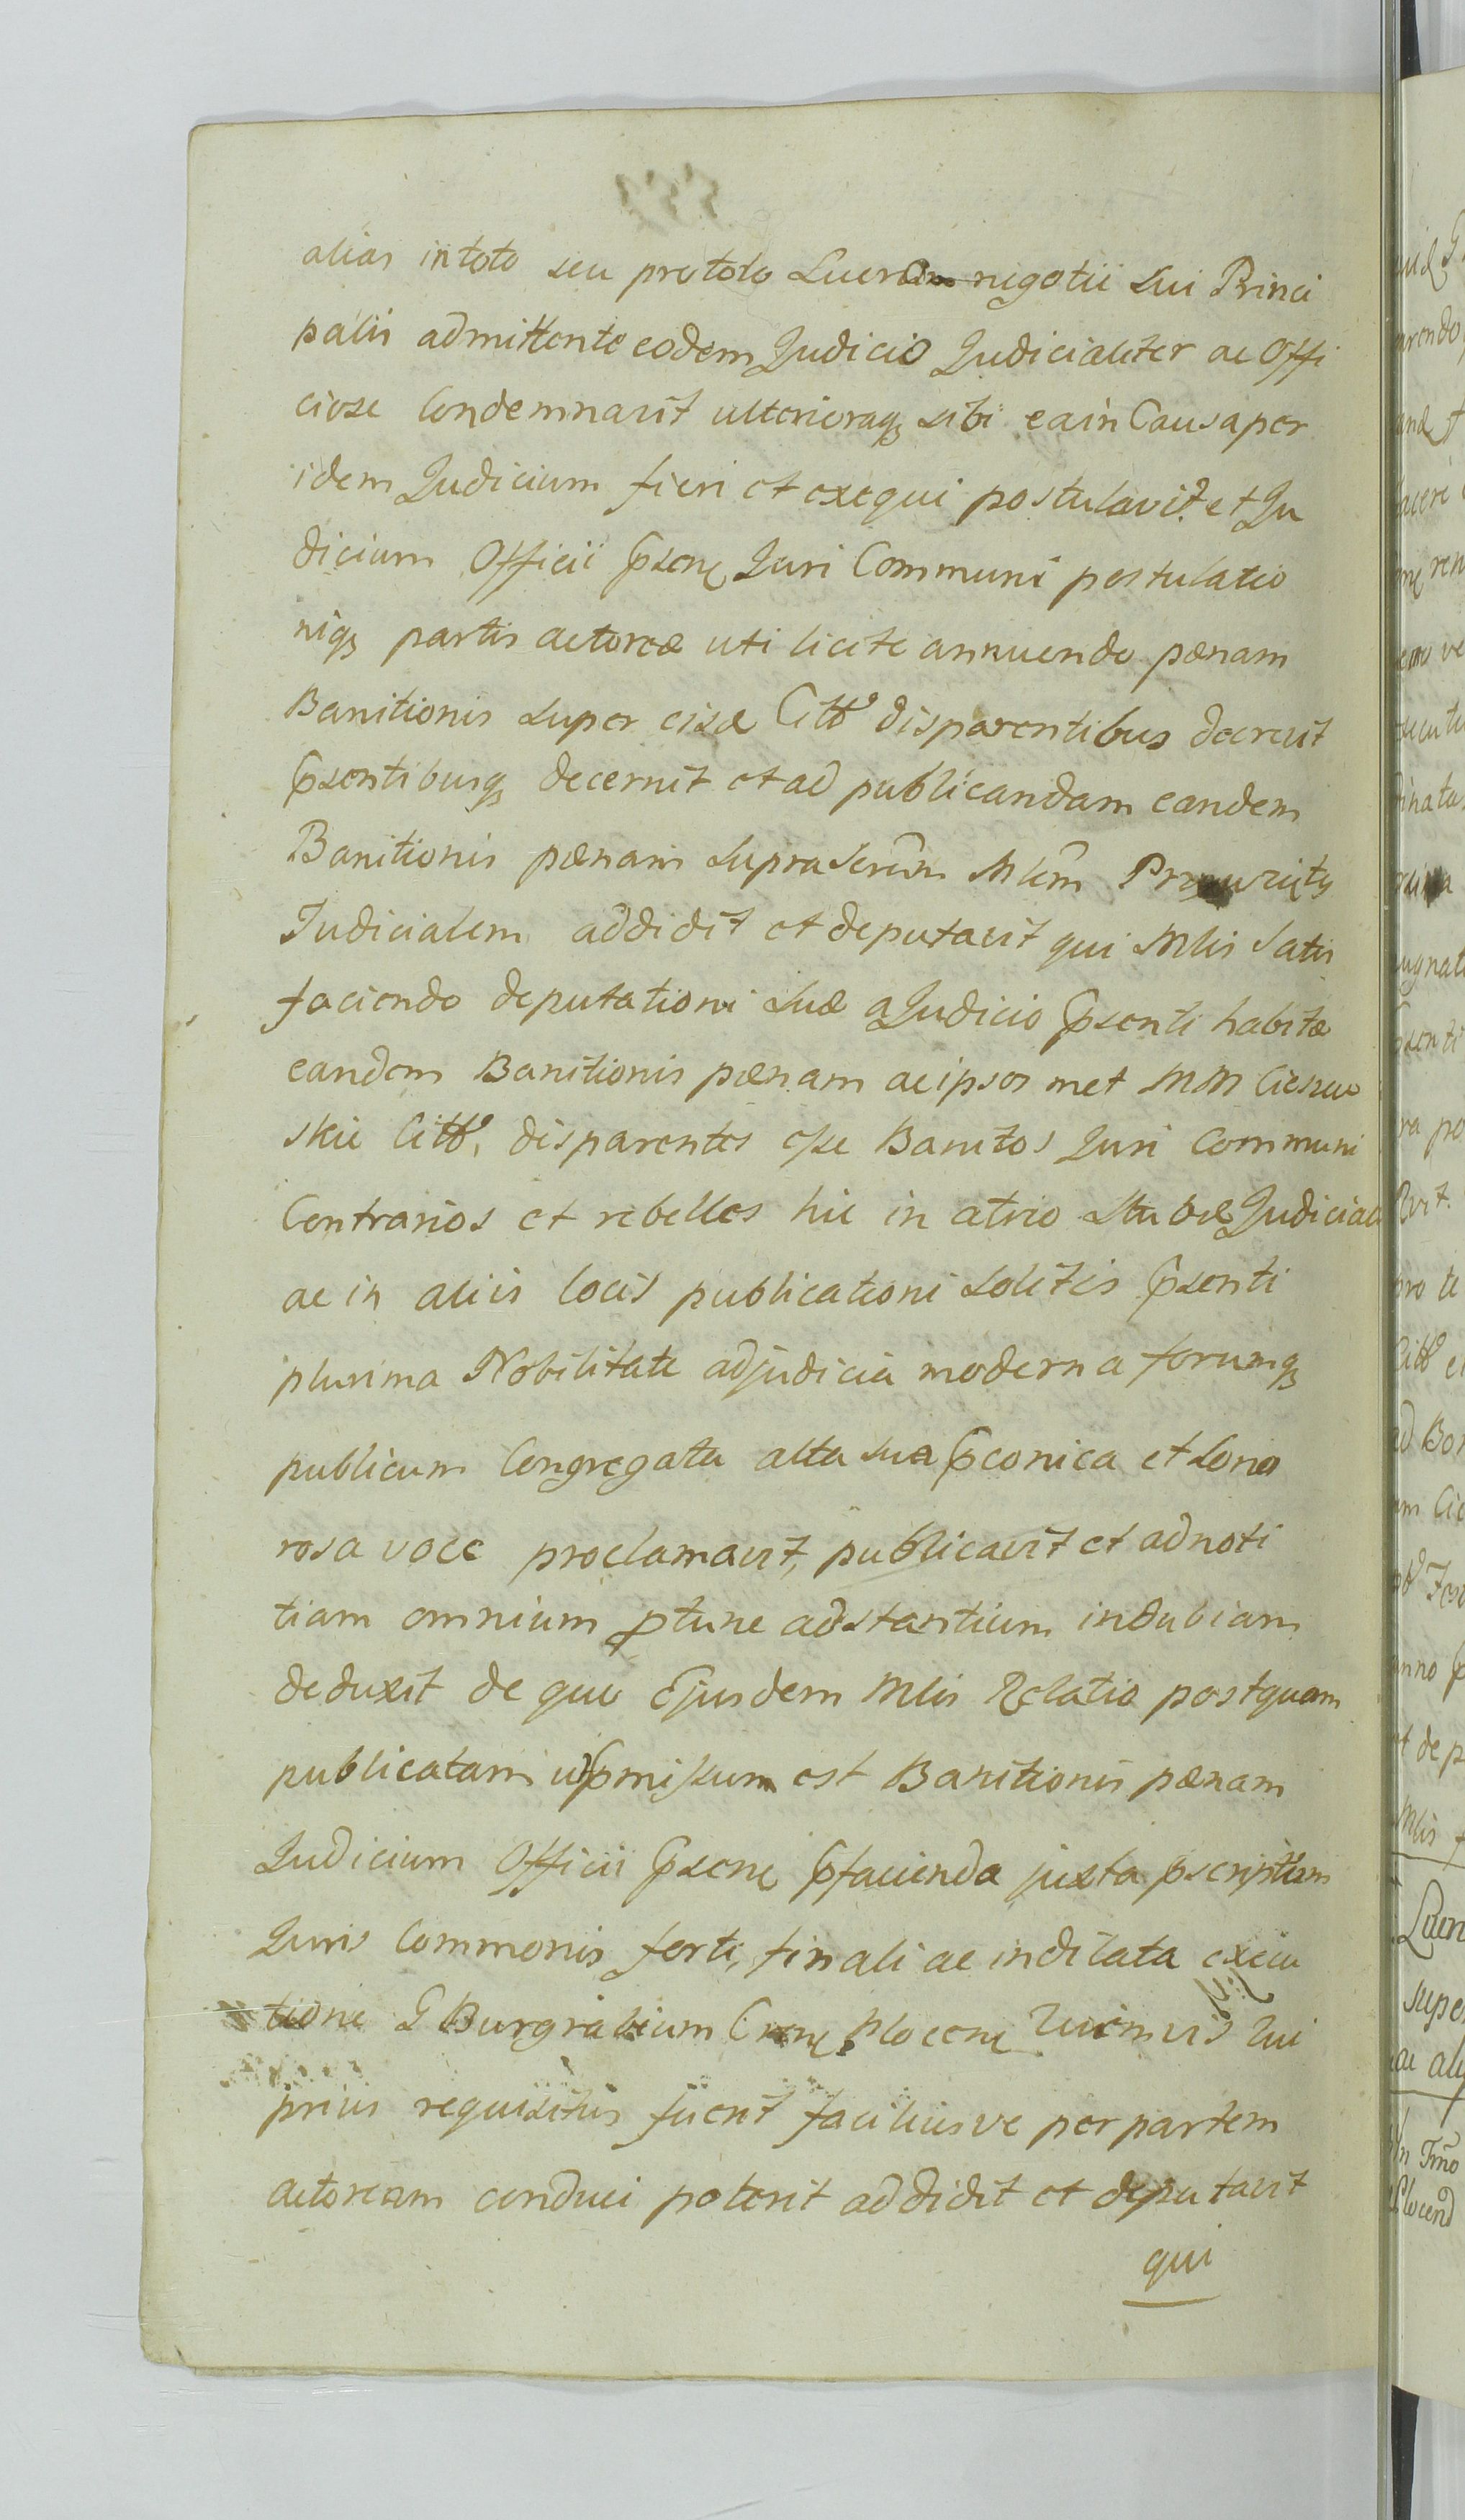 alias in toto seu pro toto Lucro negotii sui Princi
palis admittente eodem Judicio Judicialiter ac Offi
ciose Condemnavit ulterioraq; sibi ea in Causa per
idem Judicium fieri et exequi postulavit et Ju
dicium Officii Psens Juri Communi postulatio
niq; partis actoreæ uti licite annuendo pænam
Banitionis super eisd Citt disparentibus decrevit
Psentibusq; decernit et ad publicandam eandem
Banitionis pænam suprascrām Mlēm
Judicialem addidit et deputavit qui Mlis satis
faciendo deputationi suæ a Judicio Psenti habitæ
eandem Banitionis pænam ac ipsos met MM
skie Citt, disparentes esse Banitos Juri Communi
Contrarios et rebelles hic in atrio Stubæ Judicial
ac in aliis locis publicationi solitis Psenti
plurima Nobilitate ad judicia moderna forumq;
publicum Congregata alta sua Pconica et Sono
rosa voce proclamavit, publicavit et ad noti
tiam omnium ptunc adstantium indubiam
deduxit de quo Ejusdem Mlis Relatio postquam
publicatam ut Pmissum est Banitionis pænam
Judicium Officii Psens Pfacienda juxta pscriptum
Juris Commonis forti, finali ac indilata execu
tione G Burgrabium Crens Plocens
prius requisitus fuerit faciliusve per partem
actoream conduci poterit addidit et deputavit
qui